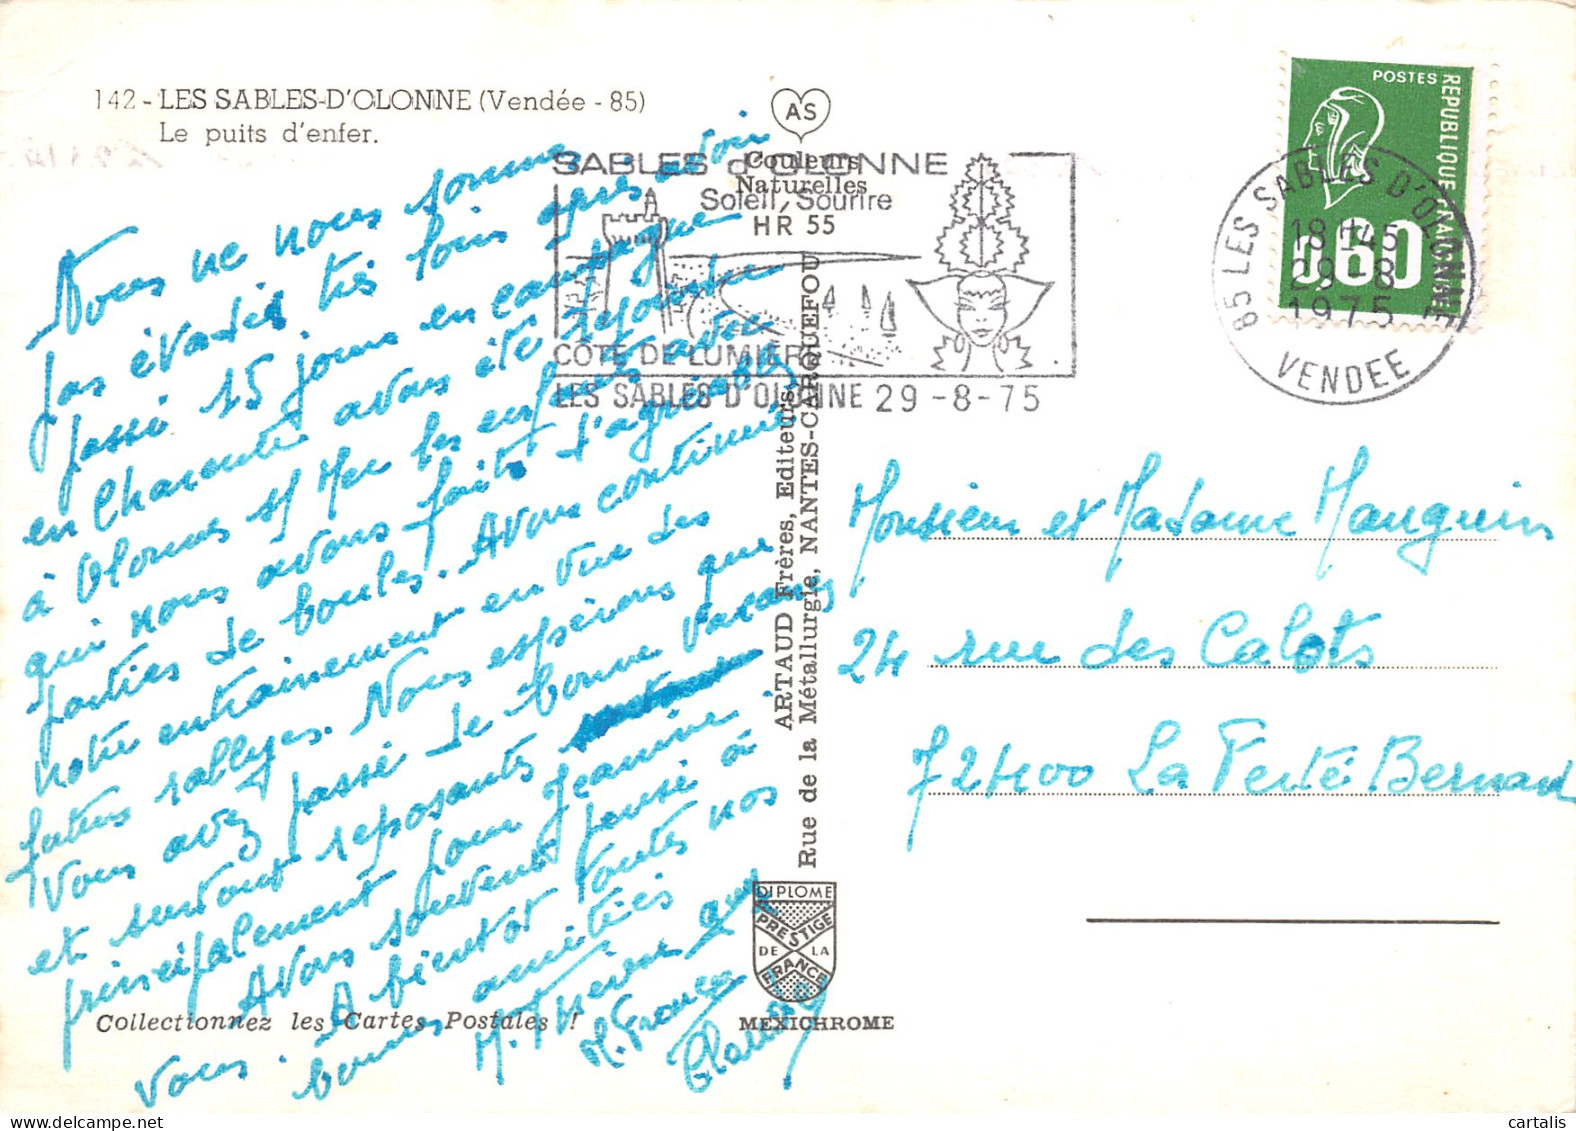 142 - LES SABLES-D'OLONNE (Vendée - 85)
Le puits d'enfer.
A S
Couleurs
Naturelles
HR 55
SABLES d'OLONNE
Soleil, Sourire
COTE DE LUMIERE
LES SABLES D'OLONNE 29-8-75
POSTES
REPUBLIQUE FRANÇAISE
0.60
85 LES SABLES D'OLONNE
18H45
29-8
1975
VENDEE
Nous ne nous sommes
pas évadés très loin après avoir
passé 15 jours en campagne
en Charente avons été rejoindre
à Olonnes s/ Mer les enfants avec
qui nous avons faits d'agréables
parties de boules. Avons continué
notre entrainement en vue des
futurs rallyes. Nous espérons que
vous avez passé de bonne vacances
et surtout reposantes
principalement pour Jeannine
Avons souvent pensé à
vous. A bientot toutes nos
bonnes amitiés
M. Thérèse Guy
M. France
Monsieur et Madame Mauguin
24 rue des Calots
72400 La Ferté Bernard
ARTAUD Frères, Editeurs
Rue de la Métallurgie, NANTES-CARQUEFOU
DIPLOME
PRESTIGE
DE LA
FRANCE
MEXICHROME
Collectionnez les Cartes Postales !
cartalis